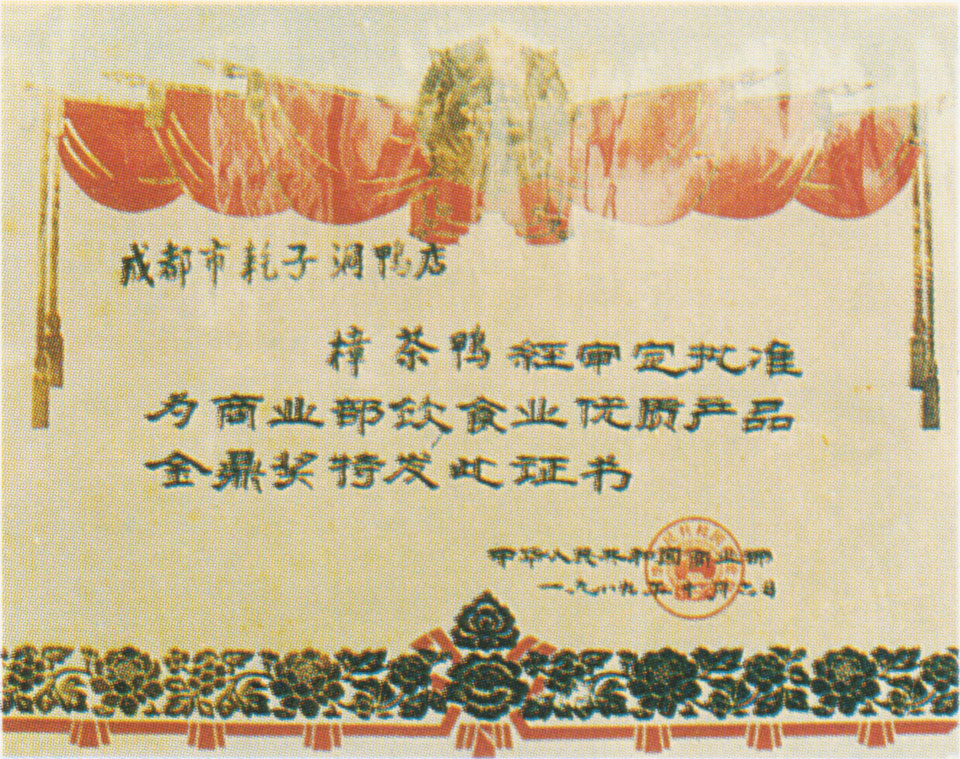 成都市耗子洞鸭店
樟茶鸭经审定批准
为商业部饮食业优质产品
金鼎奖特发此证书
中华人民共和国商业部
一九八九年十月六日